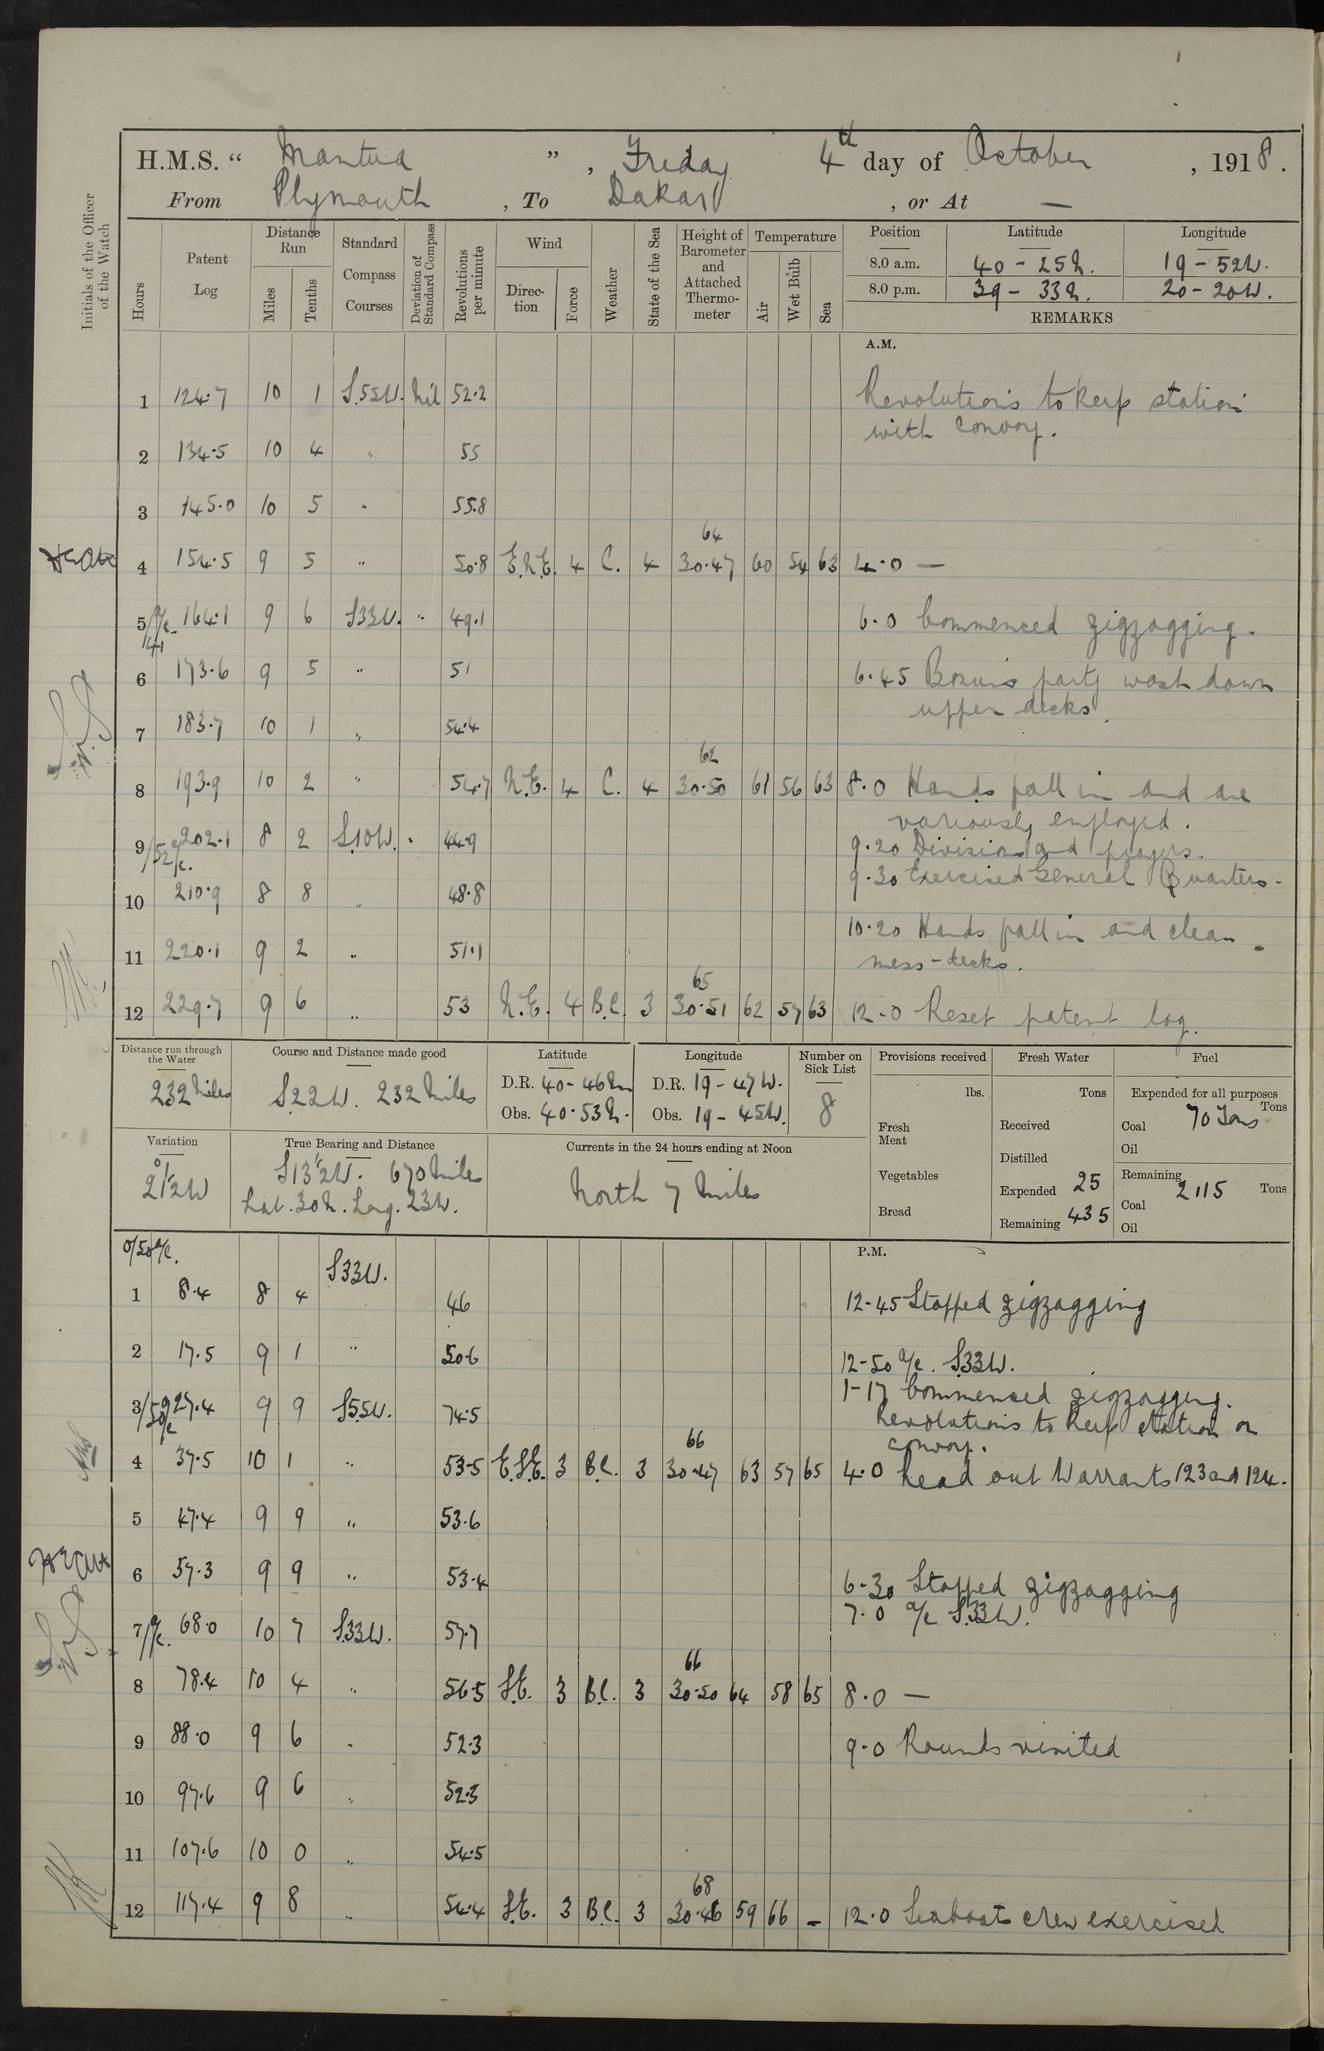 H.M.S. “ Mantua ” , Friday 4th day of October , 1918 .
From Plymouth , To Dakar , or At —
Initials of the Officer of the Watch
Hours
Patent Log
Distance Run
Miles
Tenths
Standard Compass Courses
Deviation of Standard Compass
Revolutions per minute
Wind
Direction
Force
Weather
State of the Sea
Height of Barometer and Attached Thermometer
Temperature
Air
Wet Bulb
Sea
Position Latitude Longitude
8.0 a.m. 40 - 25 N. 19 - 52 W.
8.0 p.m. 39 - 33 N. 20 - 20 W.
REMARKS
A.M.
1 124.7 10 1 S.55W. Nil 52.2 Revolutions to keep station
with convoy.
2 134.5 10 4 " 55
3 145.0 10 5 " 55.8
64
4 154.5 9 5 " 50.8 E.N.E. 4 C. 4 30.47 60 54 63 4.0 —
5 a/c 141 164.1 9 6 S33W. " 49.1 6.0 Commenced zigzagging.
6 173.6 9 5 " 51 6.45 Bosun's party wash down
upper decks.
7 183.7 10 1 " 54.4
62
8 193.9 10 2 " 54.7 N.E. 4 C. 4 30.50 61 56 63 8.0 Hands fall in and are
variously employed.
9/52 a/c. 202.1 8 2 S.10W. " 44.9 9.20 Divisions and prayers.
9.30 Exercised General Quarters.
10 210.9 8 8 " 48.8
11 220.1 9 2 " 51.1 10.20 Hands fall in and clean
mess-decks.
65
12 229.7 9 6 " 53 N.E. 4 B.C. 3 30.51 62 57 63 12.0 Reset patent log.
Distance run through the Water
232 Miles
Course and Distance made good
S.22W. 232 Miles
Latitude
D.R. 40 - 46 N.
Obs. 40.53 N.
Longitude
D.R. 19 - 47 W.
Obs. 19 - 45 W.
Number on Sick List
8
Provisions received
lbs.
Fresh Meat
Vegetables
Bread
Fresh Water
Tons
Received
Distilled
Expended 25
Remaining 435
Fuel
Expended for all purposes
Tons
Coal 70 Tons
Oil
Remaining
Coal 2115 Tons
Oil
Variation
21½°W
True Bearing and Distance
S13½W. 670 Miles
Lat. 30 N. Long. 23W.
Currents in the 24 hours ending at Noon
North 7 Miles
P.M.
0/50 a/c. S33W.
1 8.4 8 4 46 12-45 Stopped zigzagging
2 17.5 9 1 " 50.6 12-50 a/c. S.33W.
1-17 Commenced zigzagging.
3/50 a/c 27.4 9 9 S55W. 74.5 Revolutions to keep station on
convoy.
66
4 37.5 10 1 " 53.5 E.S.E. 3 B.C. 3 30.47 63 57 65 4.0 Read out Warrants 123 and 124.
5 47.4 9 9 " 53.6
6 57.3 9 9 " 53.4 6-30 Stopped zigzagging
7/a/c. 68.0 10 7 S.33W. 57.7 7.0 a/c S.33W.
66
8 78.4 10 4 " 56.5 S.E. 3 B.C. 3 30.50 64 58 65 8.0 —
9 88.0 9 6 " 52.3 9.0 Rounds visited
10 97.6 9 6 " 52.3
11 107.6 10 0 " 54.5
68
12 117.4 9 8 " 54.4 S.E. 3 B.C. 3 30.46 59 66 - 12.0 Seaboats crew exercised